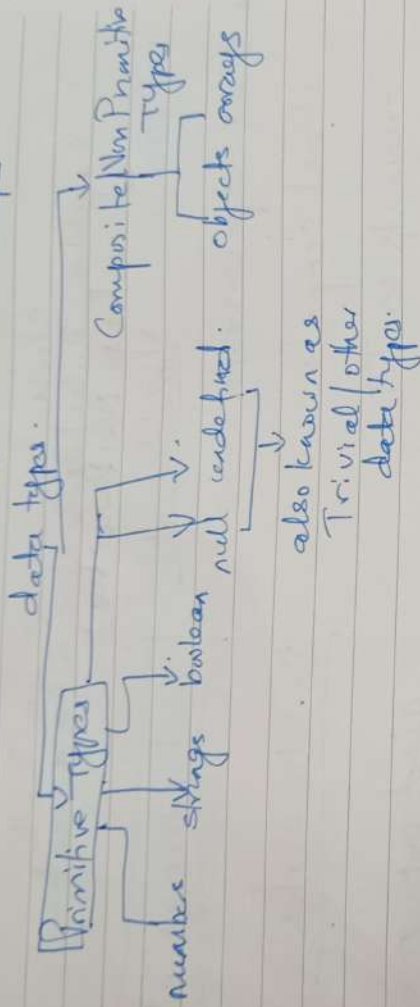 data types.
Primitive Types
Composite/Non Primitive
Types
number strings boolean null undefined. objects arrays
also known as
Trivial/other
data types.